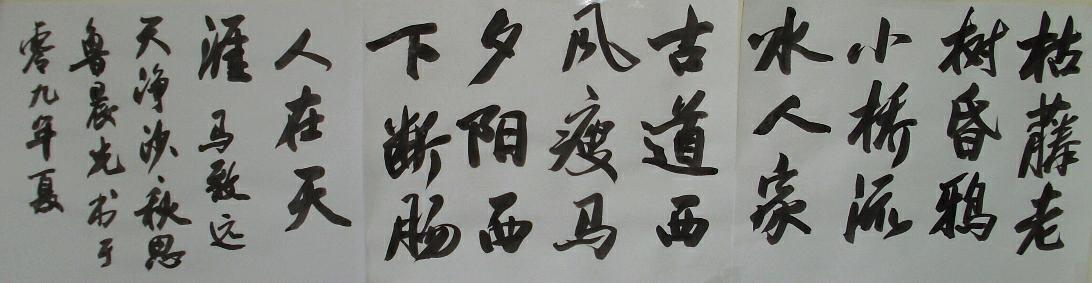 枯藤老
树昏鸦
小桥流
水人家
古道西
风瘦马
夕阳西
下断肠
人在天
涯 马致远
天净沙·秋思
鲁晨光书于
零九年夏